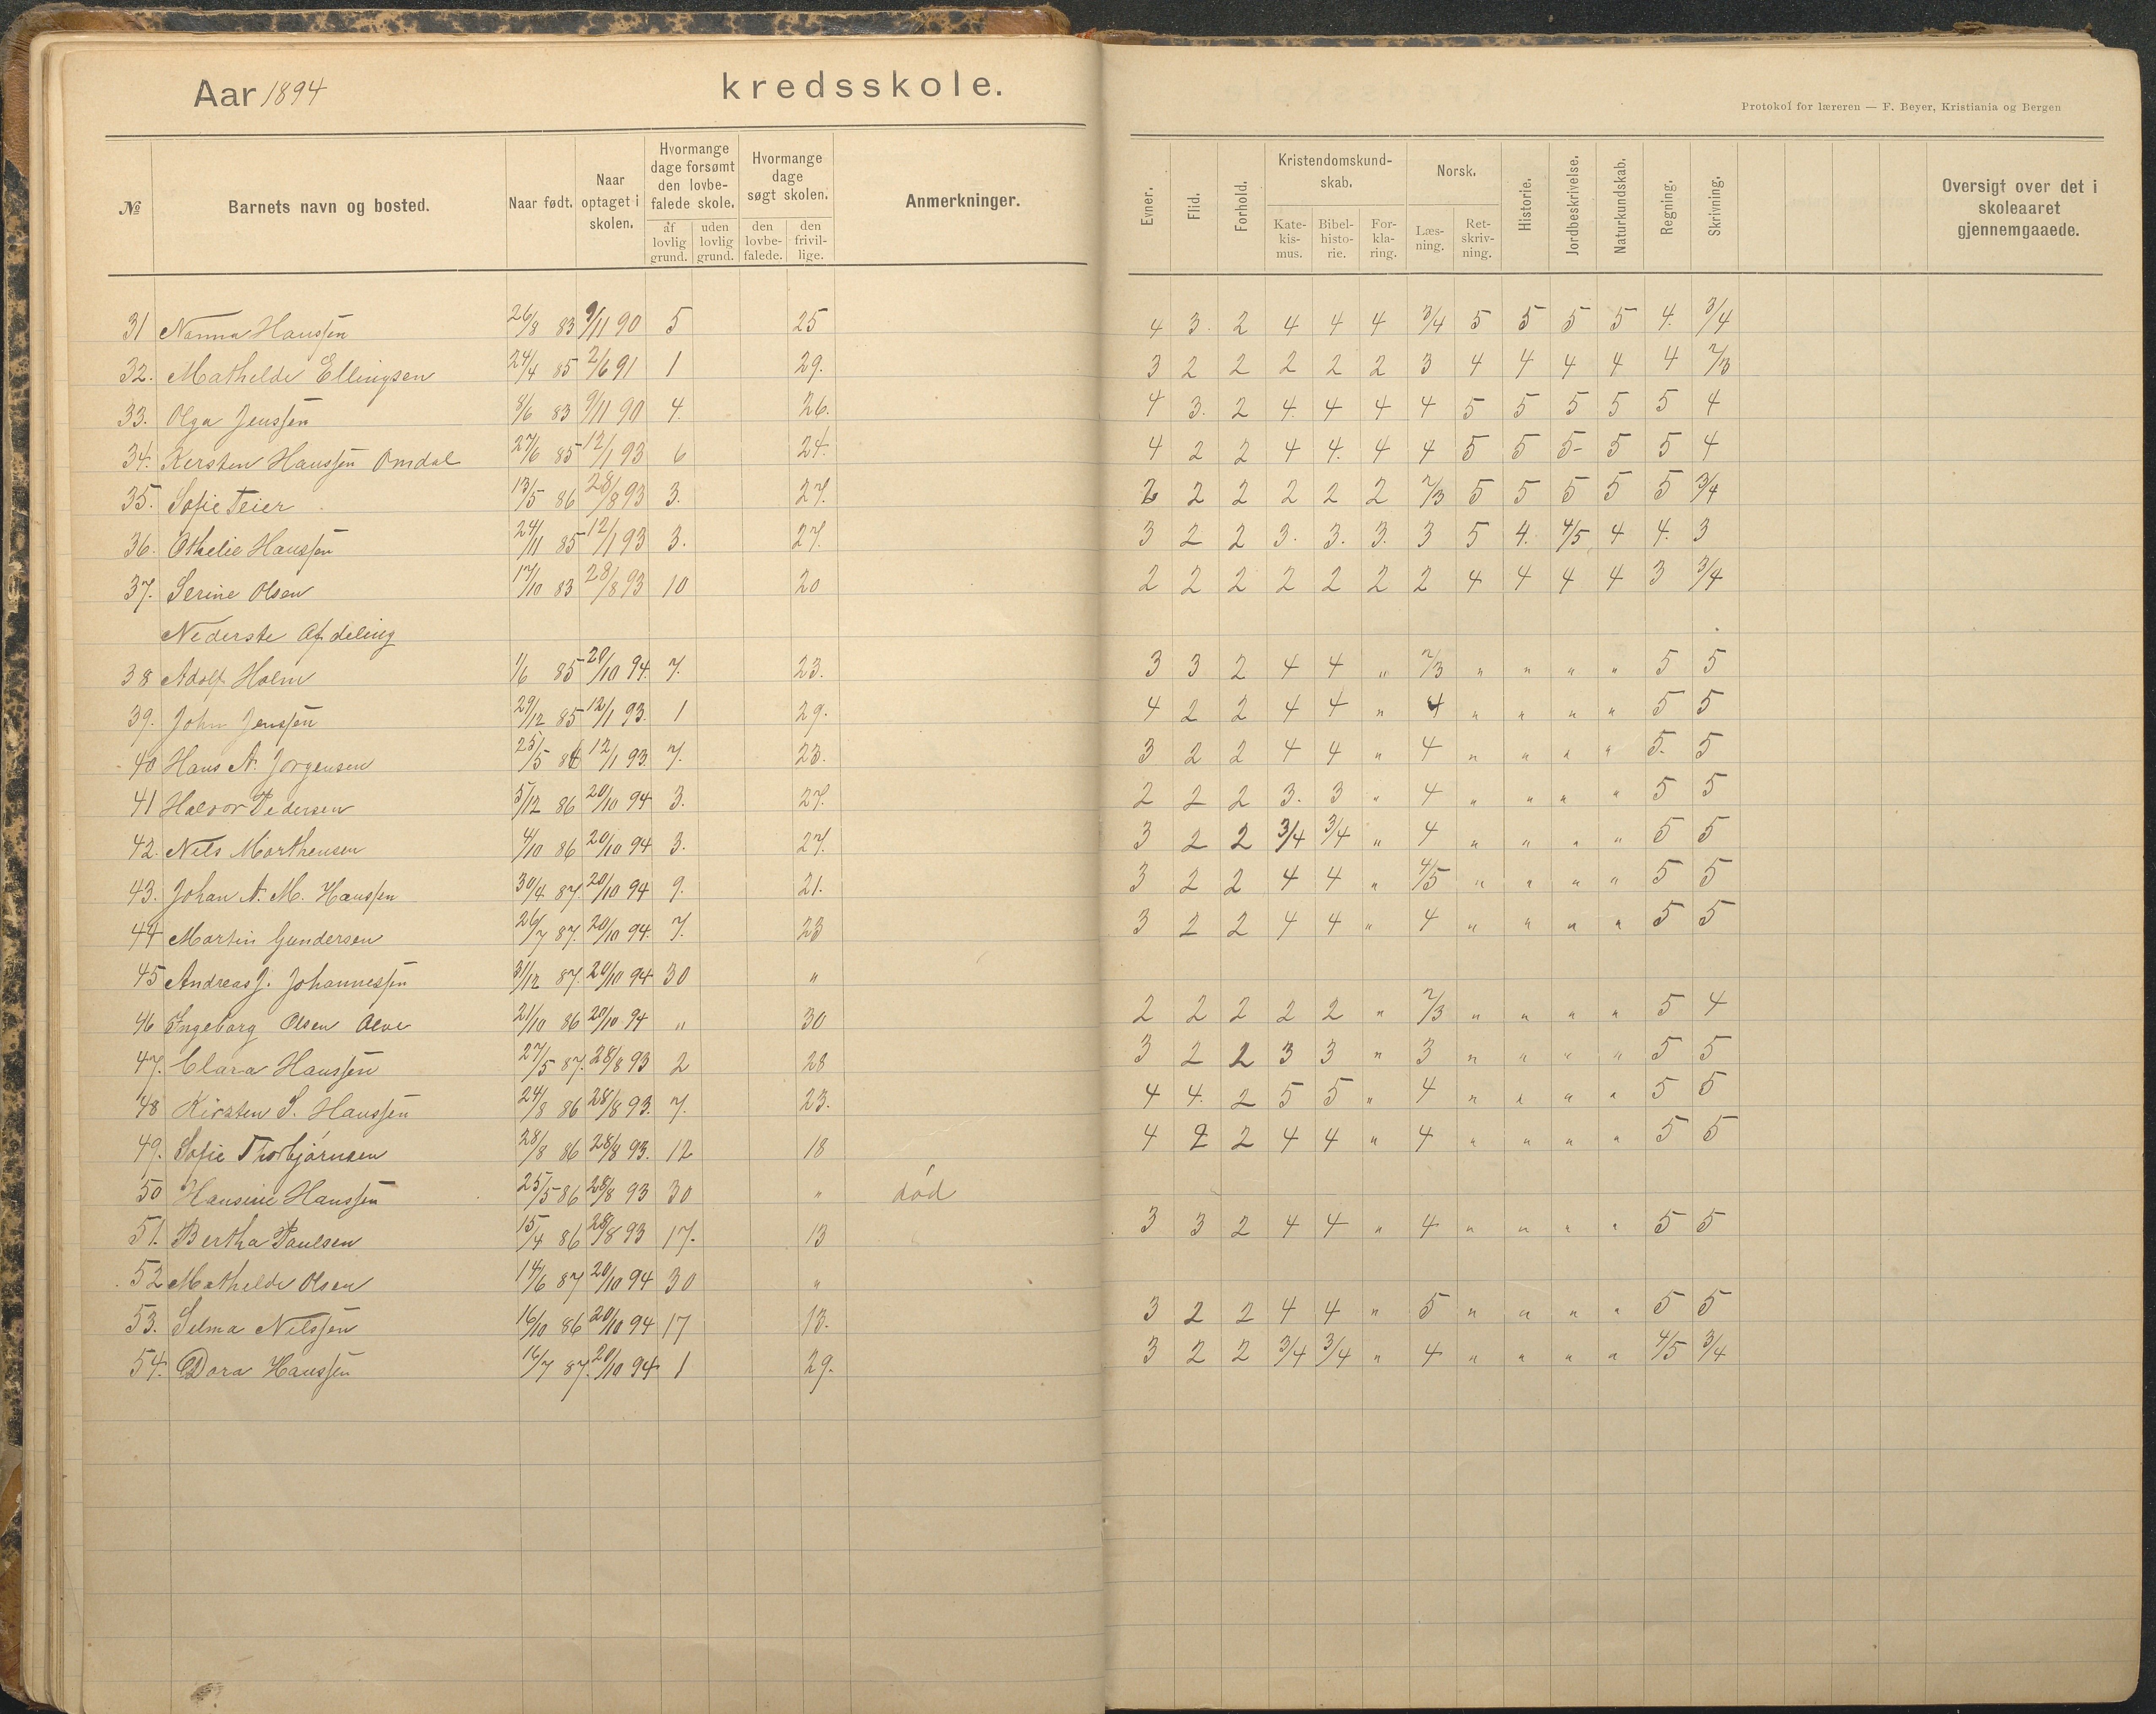 Aar 1894 kredsskole.
Protokol for læreren — F. Beyer, Kristiania og Bergen
№ Barnets navn og bosted. Naar født. Naar optaget i skolen. Hvormange dage forsømt den lovbefalede skole. af lovlig grund. uden lovlig grund. Hvormange dage søgt skolen. den lovbefalede. den frivillige. Anmerkninger. Evner. Flid. Forhold. Kristendomskundskab. Katekismus. Bibelhistorie. Forklaring. Norsk. Læsning. Retskrivning. Historie. Jordbeskrivelse. Naturkundskab. Regning. Skrivning. Oversigt over det i skoleaaret gjennemgaaede.
31 Nanna Hanssen 26/8 83 9/11 90 5 25 4 3. 2 4 4 4 3/4 5 5 5 5 4. 3/4
32. Mathelde Ellingsen 24/4 85 2/6 91 1 29. 3 2 2 2 2 2 3 4 4 4 4 4 2/3
33. Olga Jenssen 8/6 83 9/11 90 4. 26. 4 3. 2 4. 4 4 4 5 5 5 5 5 4
34. Kersten Hanssen Omdal 27/6 85 12/1 93 6 24. 4 2 2 4 4. 4 4 5 5 5- 5 5 4
35. Sofie Teier 13/5 86 28/8 93 3. 27. 2 2 2 2 2 2 2/3 5 5 5 5 5 3/4
36. Othelie Hanssen 24/11 85 12/1 93 3. 27. 3 2 2 3. 3. 3. 3 5 4. 4/5 4 4. 3
37. Serine Olsen 17/10 83 28/8 93 10 20 2 2 2 2 2 2 2 4 4 4 4 3 3/4
Nederste Afdeling
38 Adolf Holm 1/6 85 20/10 94. 7. 23. 3 3 2 4 4 " 2/3 " " " " 5 5
39. John Jenssen 29/12 85 12/1 93. 1 29. 4 2 2 4 4 " 4 " " " " 5 5
40 Hans A. Jørgensen 25/5 86 12/1 93. 7. 23. 3 2 2 4 4 " 4 " " " " 5. 5
41 Halvor Pedersen 5/12 86 20/10 94 3. 27. 2 2 2 3. 3 " 4 " " " " 5 5
42. Nils Marthensen 4/10 86 20/10 94 3. 27. 3 2 2 3/4 3/4 " 4 " " " " 5 5
43. Johan A. M. Hanssen 30/4 87. 20/10 94 9. 21. 3 2 2 4 4 " 4/5 " " " " 5 5
44 Martin Gundersen 26/7 87. 20/10 94. 7. 23 3 2 2 4 4 " 4 " " " " 5 5
45 Andreas J. Johannessen 31/12 87. 20/10 94 30 "
46 Ingeborg Olsen Alve 21/10 86 20/10 94 " 30 2 2 2 2 2 " 2/3 " " " " 5 4
47. Clara Hanssen 27/5 87. 28/8 93 2 28 3 2 2 3 3 " 3 " " " " 5 5
48 Kirsten S. Hanssen 24/8 86 28/8 93. 7. 23. 4 4. 2 5 5 " 4 " " " " 5 5
49. Sofie Thorbjørnsen 28/8 86 28/8 93. 12 18 4 2 2 4 4 " 4 " " " " 5 5
50 Hansine Hanssen 25/5 86 28/8 93 30 " død
51. Bertha Paulsen 15/4 86 28/8 93 17. 13 3 3 2 4 4 " 4 " " " " 5 5
52 Mathelde Olsen 14/6 87 20/10 94 30 "
53. Selma Nilssen 16/10 86 20/10 94 17 13. 3 2 2 4 4 " 5 " " " " 5 5
54. Dora Hanssen 16/7 87. 20/10 94 1 29. 3 2 2 3/4 3/4 " 4 " " " " 4/5 3/4